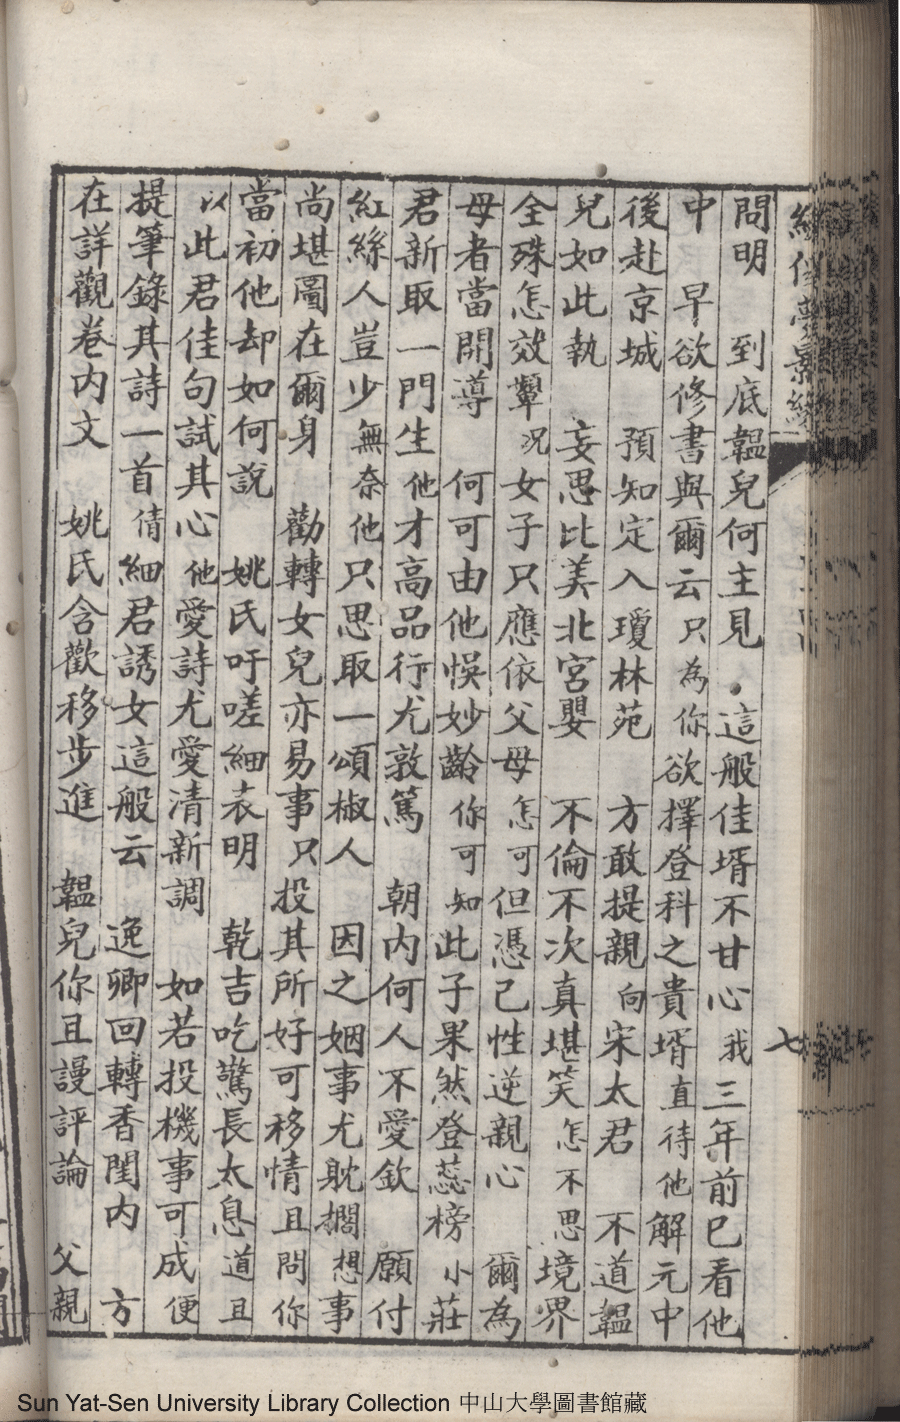 問明　到底韞兒何主見　這般佳壻不甘心我三年前已看他
中　早欲修書與爾云只為你欲擇登科之貴壻直待他解元中
後赴京城　預知定入瓊林苑　方敢提親向宋太君　不道韞
兒如此執　妄思比美北宮嬰　不倫不次真堪笑怎不思境界
全殊怎效顰況女子只應依父母怎可但憑己性逆親心　爾為
母者當開導　何可由他悞妙齡你可知此子果然登蕊榜小莊
君新取一門生他才高品行尤敦篤　朝内何人不愛欽　願付
紅絲人豈少無奈他只思取一頌椒人　因之姻事尤耽擱想事
尚堪圖在爾身　勸轉女兒亦易事只投其所好可移情且問你
當初他却如何說　姚氏吁嗟細表明　乾吉吃驚長太息道且
以此君佳句試其心他愛詩尤愛清新調　如若投機事可成便
提筆錄其詩一首倩細君誘女這般云　逸卿回轉香閨内　方
在詳觀卷内文　姚氏含歡移步進　韞兒你且謾評論　父親
七
Sun Yat-Sen University Library Collection 中山大學圖書館藏